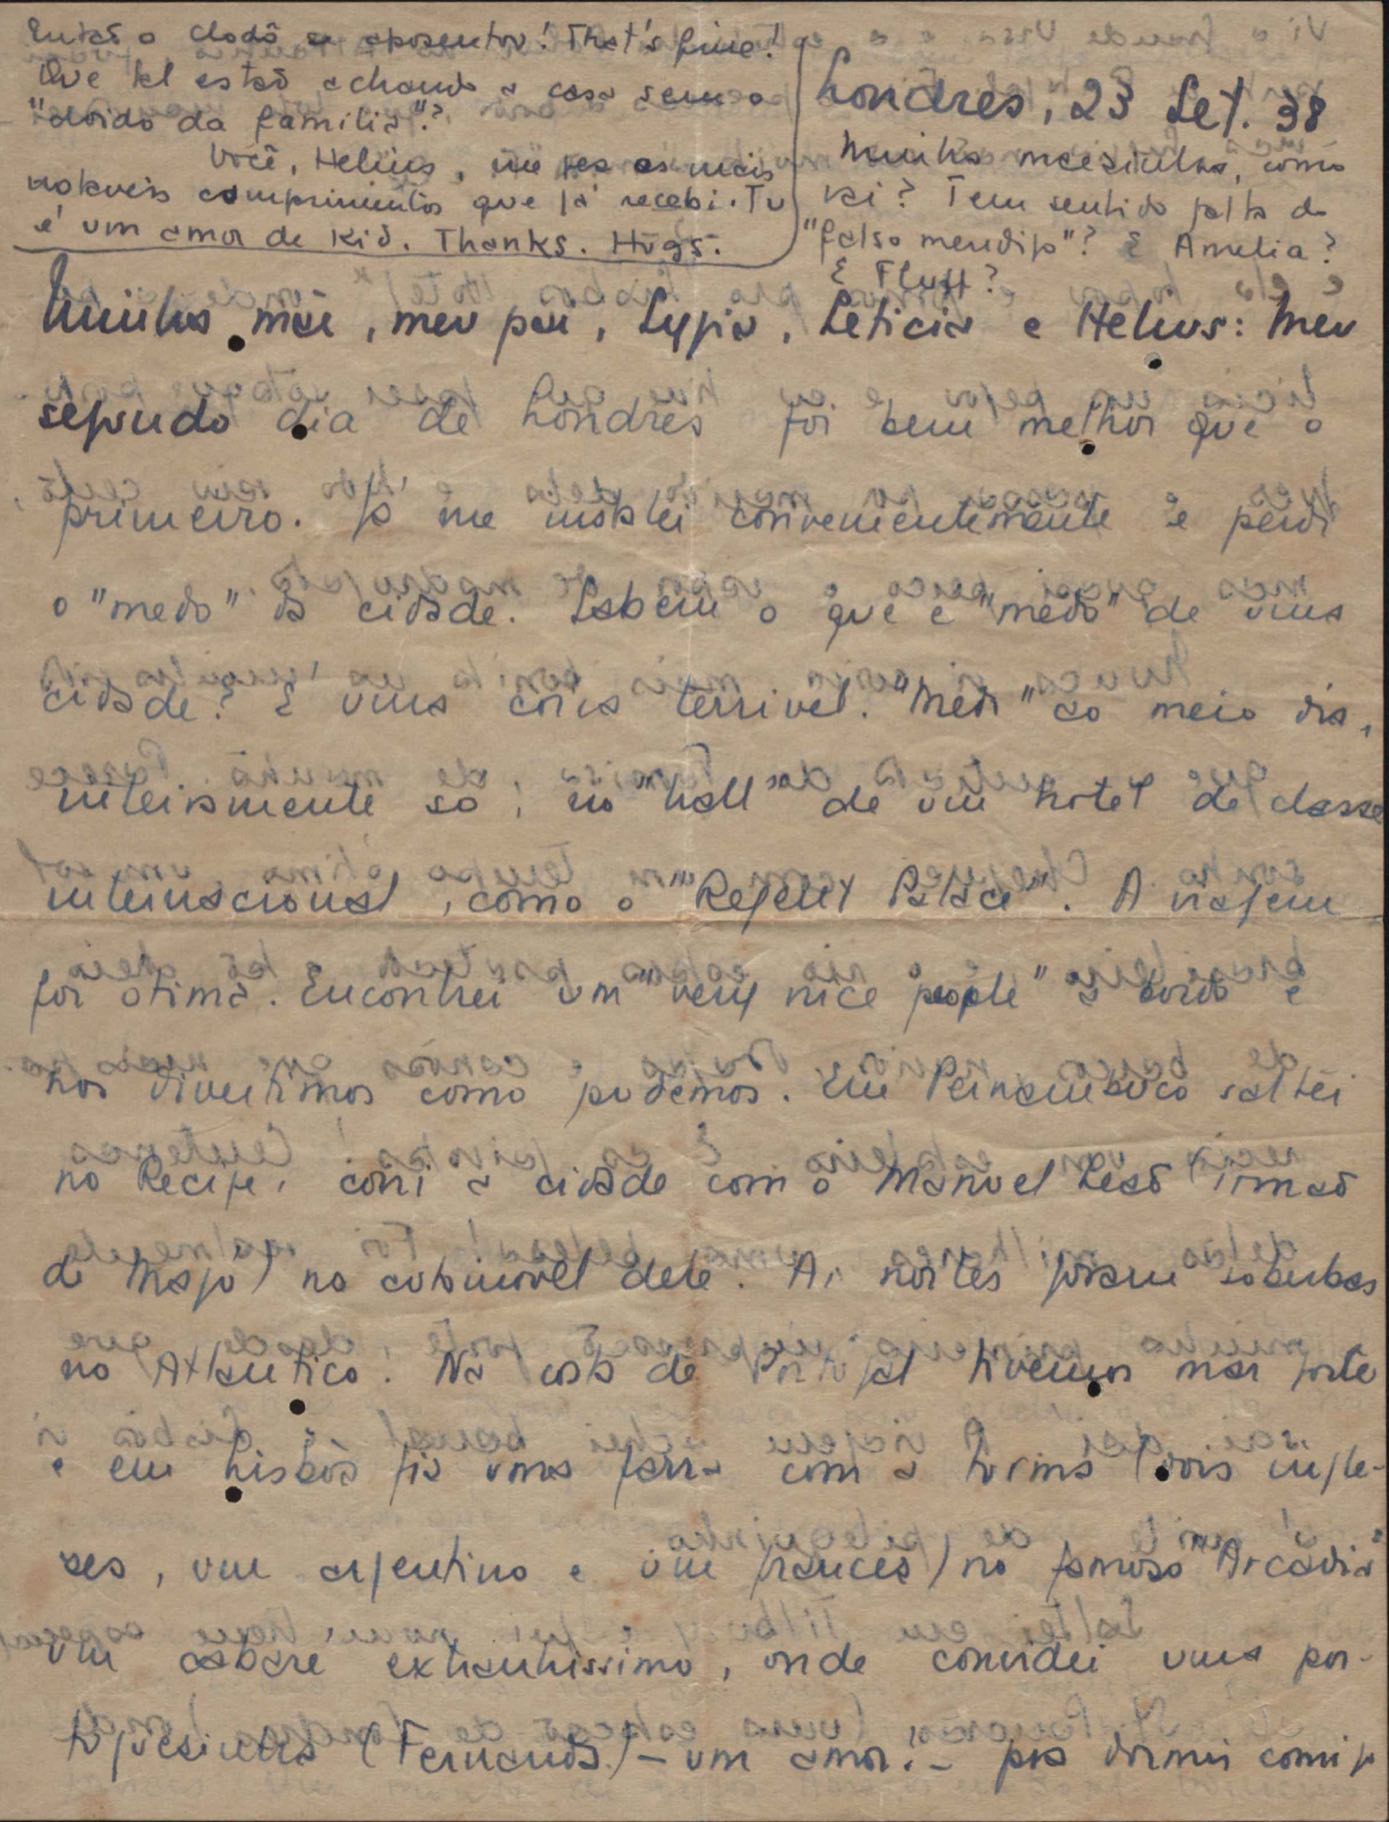 Então o Clodô se aposentou! That's fine!
Que tal estão achando a casa sem o
"doido da familia"?
Você, Helius, me fez os mais
notaveis comprimentos que já recebi. Tu
é um amor de kid. Thanks. Hugs.
Londres, 23 Set. 38
Minha mãesinha, como
vai? Tem sentido falta do
"falso mendigo"? E Amelia?
E Fluff?
Minha mãe, meu pai, Lygia, Leticia e Helius: Meu
segundo dia de Londres foi bem melhor que o
primeiro. Já me instalei convenientemente e perdi
o "medo" da cidade. Sabem o que é "medo" de uma
cidade? É uma coisa terrivel. "Medo" ao meio dia,
inteiramente só, no "hall" de um hotel de classe
internacional, como o "Regent Palace". A viagem
foi otima. Encontrei um "very nice people" a bordo e
nos divertimos como pudemos. Em Pernambuco saltei
no Recife, corri a cidade com o Manuel Leão (irmão
do Mago) no automovel dele. As noites foram soberbas
no Atlantico. Na costa de Portugal tivemos mar forte
e em Lisbôa fiz uma farra com a turma (dois ingle-
ses, um argentino e um francês) no famoso "Arcadia"
um cabaré extraurissimo, onde convidei uma por-
tuguesinha (Fernanda) - um amor! - pra dormir comigo